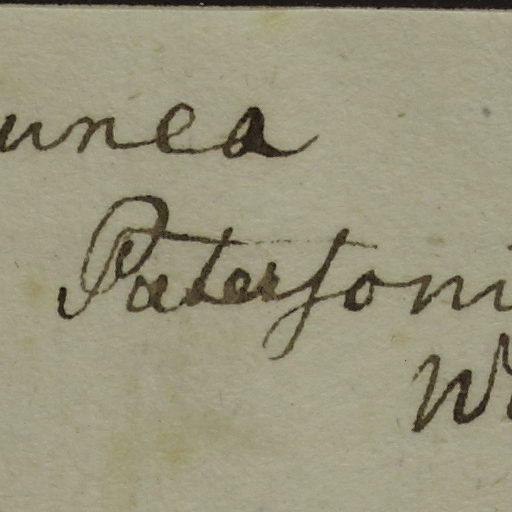 unea
Paterſoni
W